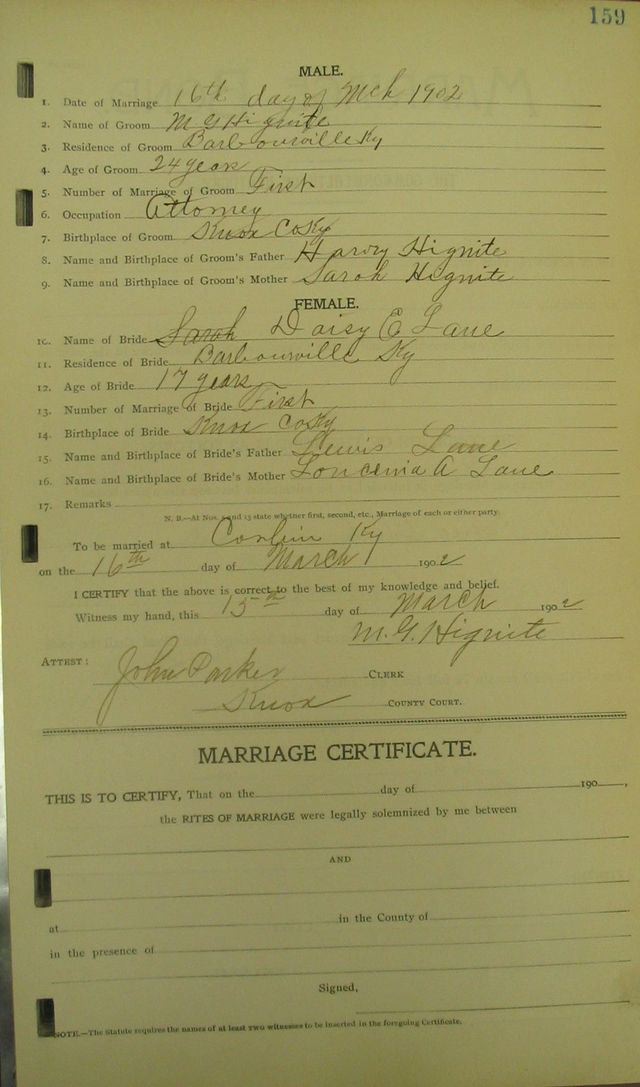 159
MALE.
1. Date of Marriage 16th day of Mch 1902
2. Name of Groom M G Hignite
3. Residence of Groom Barbourville Ky
4. Age of Groom 24 years
5. Number of Marriage of Groom First
6. Occupation Attorney
7. Birthplace of Groom Knox Co Ky
8. Name and Birthplace of Groom's Father Harvy Hignite
9. Name and Birthplace of Groom's Mother Sarah Hignite
FEMALE.
10. Name of Bride Sarah Daisy E Lane
11. Residence of Bride Barbourville Ky
12. Age of Bride 17 years
13. Number of Marriage of Bride First
14. Birthplace of Bride Knox Co Ky
15. Name and Birthplace of Bride's Father Lewis Lane
16. Name and Birthplace of Bride's Mother A Lane
17. Remarks
N. B.—At Nos. 5 and 13 state whether first, second, etc., Marriage of each or either party.
To be married at Corbin Ky
on the 16th day of March 1902
I CERTIFY that the above is correct to the best of my knowledge and belief.
Witness my hand, this 15th day of March 1902
M. G. Hignite
ATTEST: John Parker CLERK
Knox COUNTY COURT.
MARRIAGE CERTIFICATE.
THIS IS TO CERTIFY, That on the day of 190 ,
the RITES OF MARRIAGE were legally solemnized by me between
AND
at in the County of
in the presence of
Signed,
NOTE.—The Statute requires the names of at least two witnesses to be inserted in the foregoing Certificate.